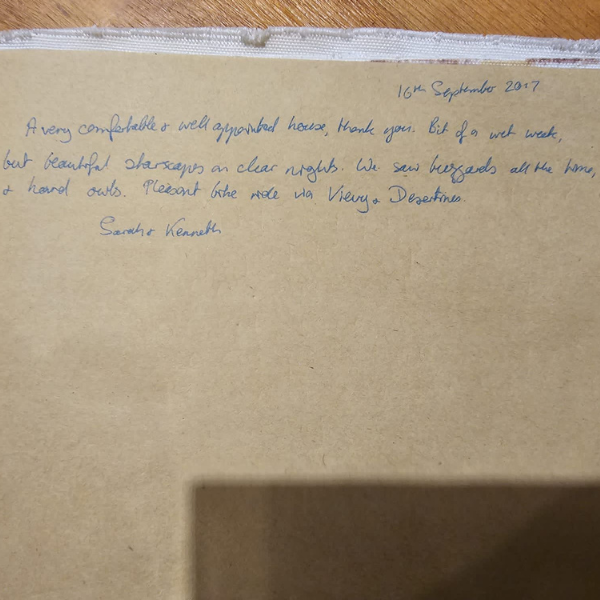 16th September 2017
A very comfortable & well appointed house, thank you. Bit of a wet week,
but beautiful starscapes on clear nights. We saw buzzards all the time,
& heard owls. Pleasant bike ride via Vievy & Desertines.
Sarah & Kenneth